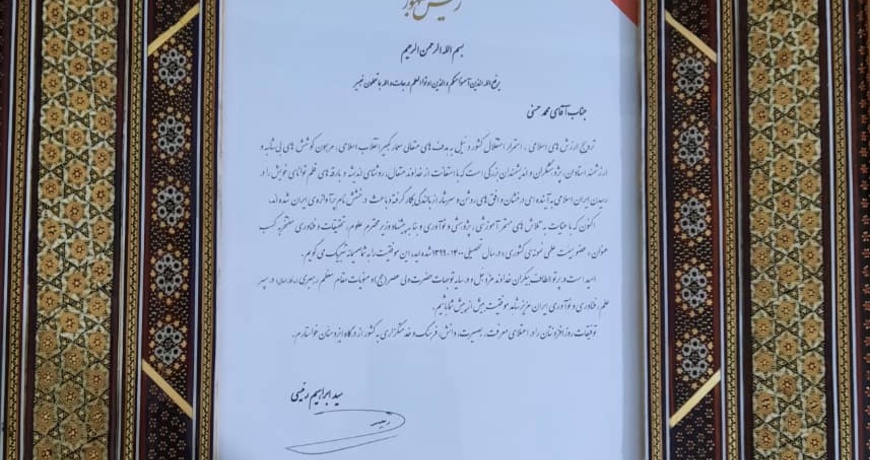 رئیس جمهور
بسم الله الرحمن الرحیم
یرفع الله الذین آمنوا منکم والذین اوتوا العلم درجات والله بما تعملون خبیر
جناب آقای محمد حسنی
ترویج ارزش های اسلامی، استمرار استقلال کشور و نیل به هدف های متعالی معمار کبیر انقلاب اسلامی، مرهون کوشش های بی شائبه و
ارزشمند استادان، پژوهشگران و اندیشمندان بزرگی است که با استعانت از خداوند متعال، روشنای اندیشه و بارقه های قلم توانای خویش را در
رسیدن ایران اسلامی به آینده ای درخشان و افق های روشن و سرشار از بالندگی بکار گرفته و باعث درخشش نام پرآوازه ی ایران شده اند.
اکنون که با عنایت به تلاش های مستمر آموزشی، پژوهشی و نوآوری و بنا به پیشنهاد وزیر محترم علوم، تحقیقات و فناوری مفتخر به کسب
عنوان «عضو هیئت علمی نمونه ی کشوری» در سال تحصیلی ۱۴۰۰-۱۳۹۹ شده اید، این موفقیت را به شما صمیمانه تبریک می گویم.
امید است در پرتو الطاف بیکران خداوند عزوجل و در سایه توجهات حضرت ولی عصر (عج) و منویات مقام معظم رهبری (مدظله العالی) در سپهر
علم، فناوری و نوآوری ایران عزیز شاهد موفقیت بیش از پیش شما باشیم.
توفیقات روزافزونتان را در اعتلای معرفت، بصیرت، دانش، فرهنگ و خدمتگزاری به کشور از درگاه ایزد منان خواستارم.
سید ابراهیم رئیسی